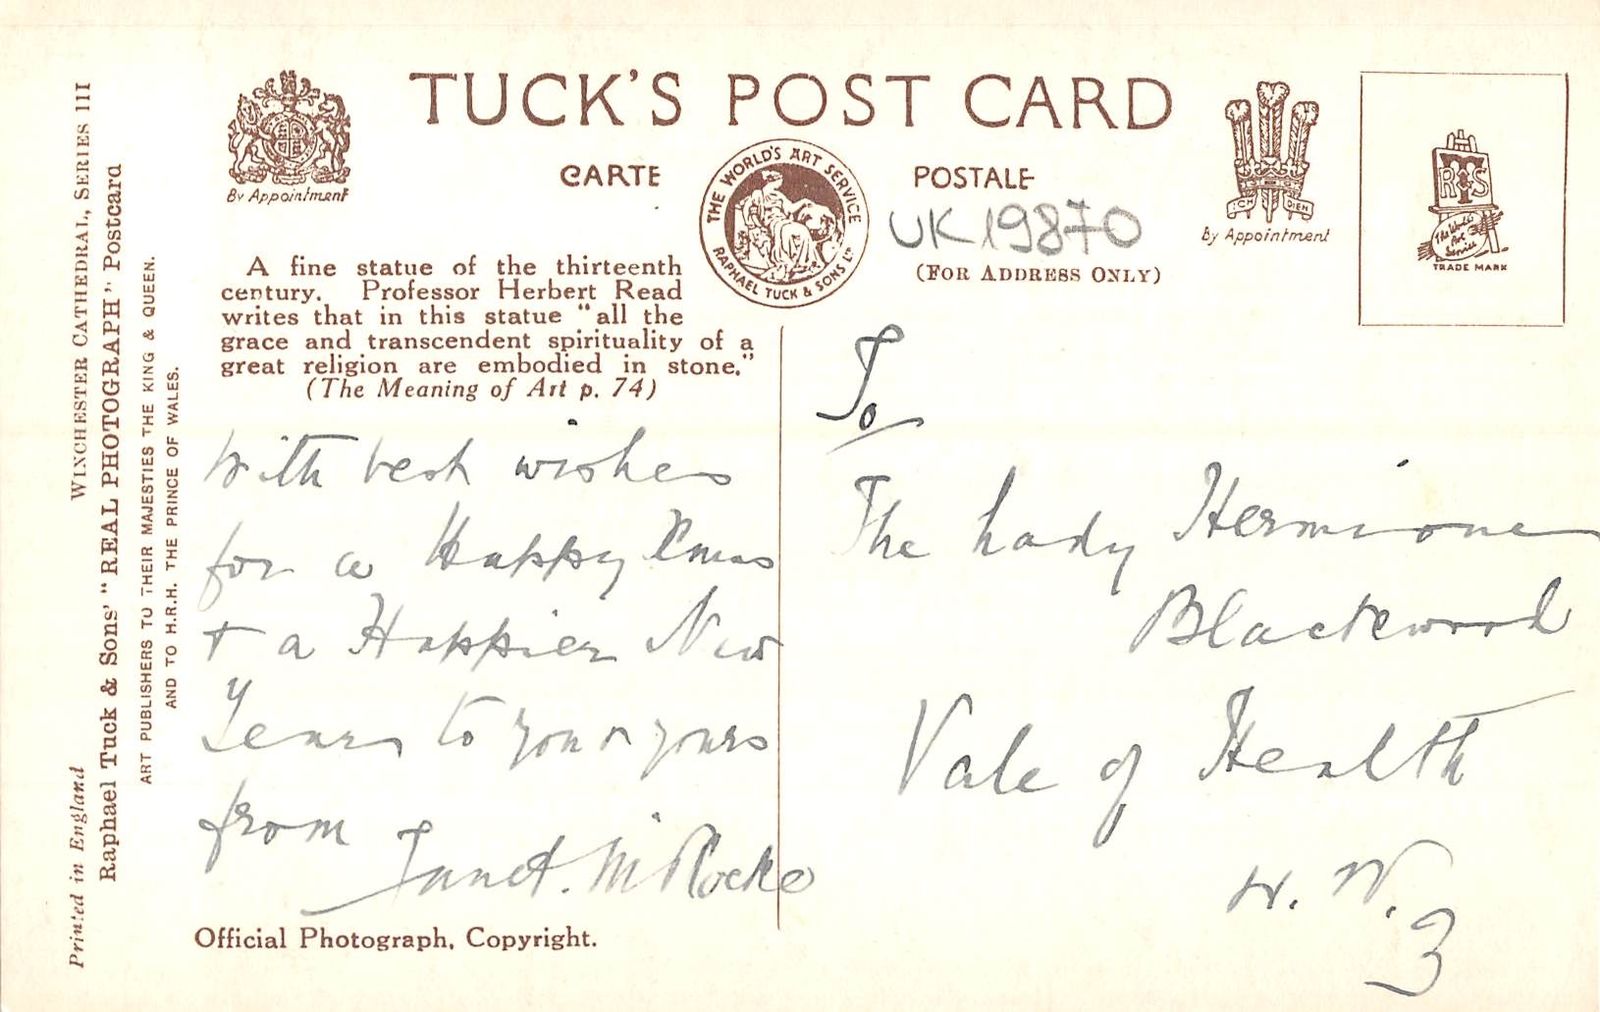 TUCK'S POST CARD
CARTE POSTALE
By Appointment
THE WORLD'S ART SERVICE
RAPHAEL TUCK & SONS LTD
UK 19870
(FOR ADDRESS ONLY)
ICH DIEN
By Appointment
RTS
The World's
Art
Service
TRADE MARK
WINCHESTER CATHEDRAL, SERIES III
Printed in England
Raphael Tuck & Sons' "REAL PHOTOGRAPH" Postcard
ART PUBLISHERS TO THEIR MAJESTIES THE KING & QUEEN.
AND TO H.R.H. THE PRINCE OF WALES.
A fine statue of the thirteenth
century. Professor Herbert Read
writes that in this statue "all the
grace and transcendent spirituality of a
great religion are embodied in stone."
(The Meaning of Art p. 74)
With best wishes
for a Happy Xmas
+ a Happier New
Year to you & yours
from
Janet.
Official Photograph, Copyright.
To
The Lady Hermione
Blackwood
Vale of Health
N. W.
3